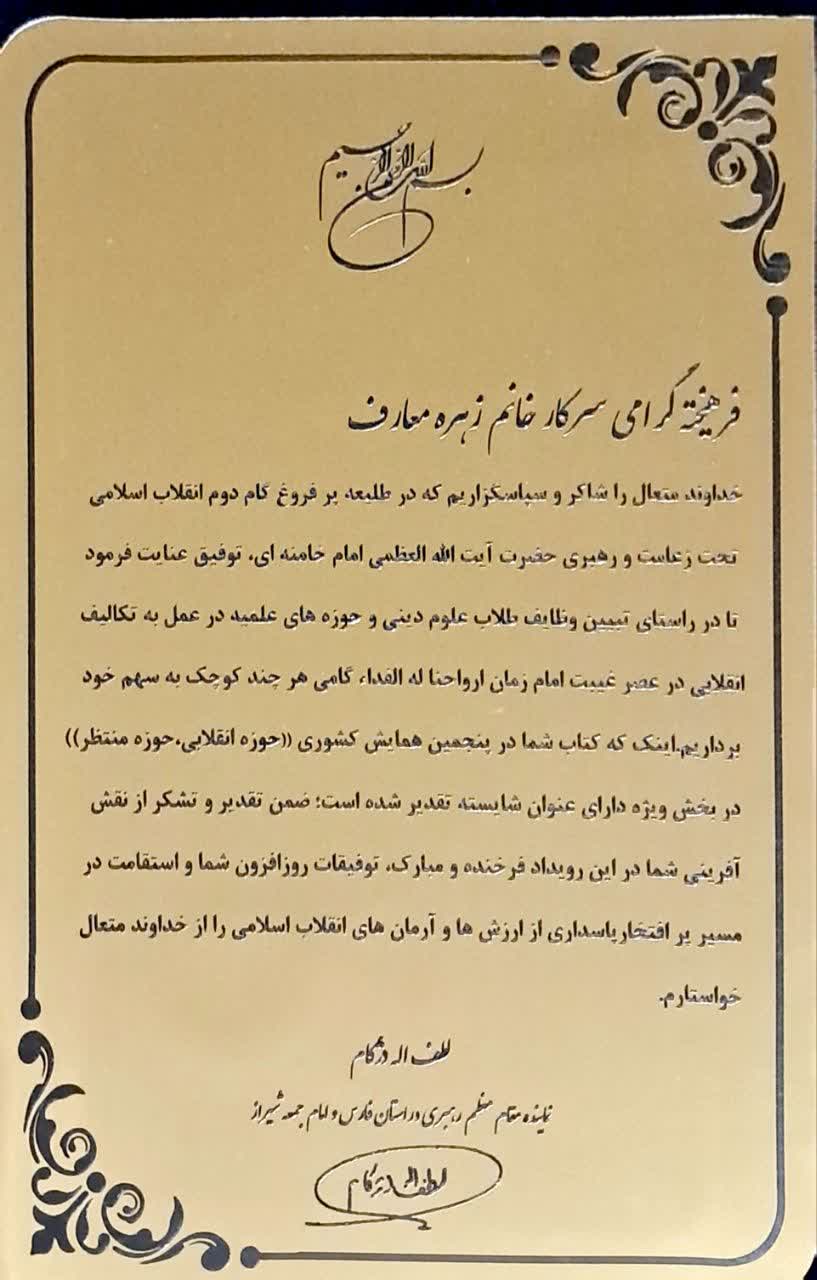 بسم الله الرحمن الرحیم
فرهیخته گرامی سرکار خانم زهره معارف
خداوند متعال را شاکر و سپاسگزاریم که در طلیعه پر فروغ گام دوم انقلاب اسلامی
تحت زعامت و رهبری حضرت آیت الله العظمی امام خامنه ای، توفیق عنایت فرمود
تا در راستای تبیین وظایف طلاب علوم دینی و حوزه های علمیه در عمل به تکالیف
انقلابی در عصر غیبت امام زمان ارواحنا له الفداء گامی هر چند کوچک به سهم خود
برداریم.اینک که کتاب شما در پنجمین همایش کشوری ((حوزه انقلابی،حوزه منتظر))
در بخش ویژه دارای عنوان شایسته تقدیر شده است؛ ضمن تقدیر و تشکر از نقش
آفرینی شما در این رویداد فرخنده و مبارک، توفیقات روزافزون شما و استقامت در
مسیر پر افتخارپاسداری از ارزش ها و آرمان های انقلاب اسلامی را از خداوند متعال
خواستارم.
لطف اله دژکام
نماینده مقام معظم رهبری در استان فارس و امام جمعه شیراز
لطف اله دژکام